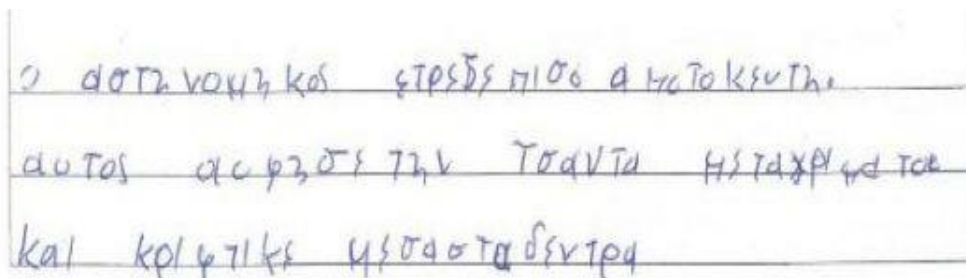 ο αστηνομηκος ετρεξε πισο απο τοκευτη.
αυτος αφησε την τσαντα μεταχριματα
και κριφτικε μεσαστα δεντρα